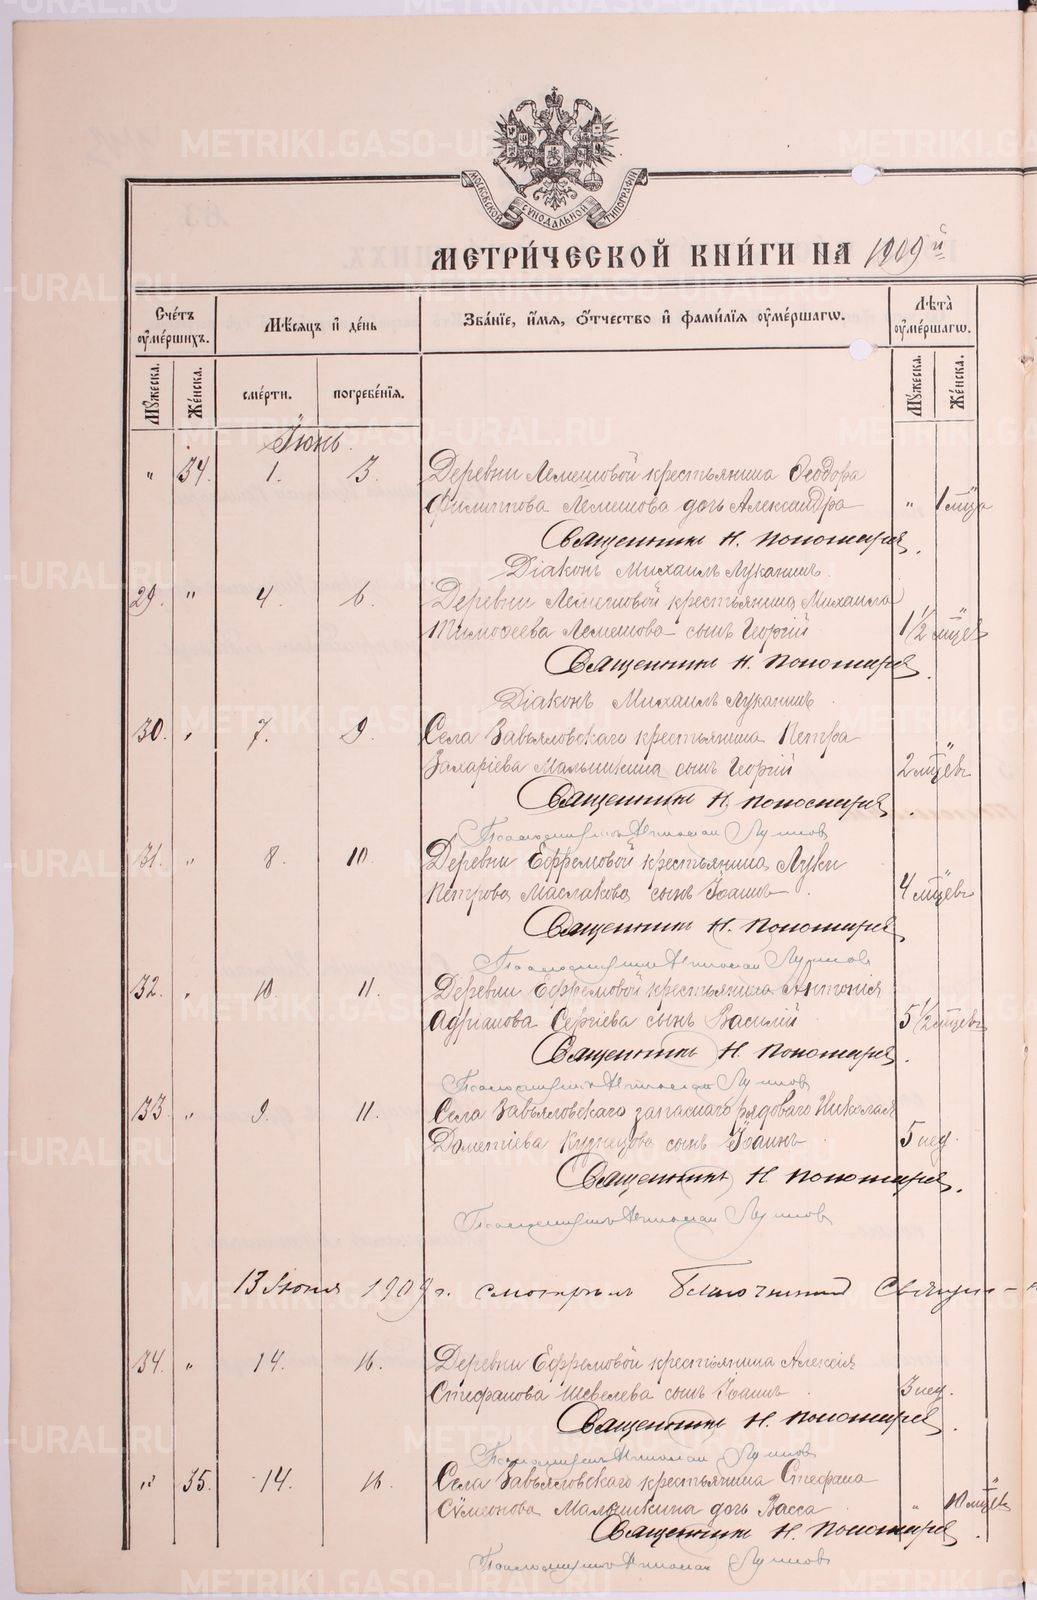 МОСКОВСКОЙ СѴНОДАЛЬНОЙ ТИПОГРАФІИ
МЕТРИ́ЧЕСКОЙ КНИ́ГИ НА 1909й
Сче́тъ ᲂу҆ме́ршихъ.
Мꙋ́жеска.
Же́нска.
Мѣ́сяцъ и҆ де́нь
сме́рти.
погребе́нїѧ.
Зва́нїе, и҆́мѧ, ѻ҆́тчество и҆ фами́лїѧ ᲂу҆ме́ршагѡ.
Лѣта̀ ᲂу҆ме́ршагѡ.
Мꙋ́жеска.
Же́нска.
Іюнь.
" 34. 1. 3. Деревни Лемешовой крестьянина Ѳеодора
Филиппова Лемешова дочь Александра " 1 мца
Священникъ Н. Пономарев.
Діаконъ Михаилъ Луканинъ.
29. " 4. 6. Деревни Лемешовой крестьянина Михаила
Тимоѳеева Лемешова сынъ Георгій 1 1/2 мцевъ
Священникъ Н. Пономарев.
Діаконъ Михаилъ Луканинъ
30. " 7. 9. Села Завьяловскаго крестьянина Петра
Захаріева Малышкина сынъ Георгій 2 мцевъ
Священникъ Н. Пономарев.
Псаломщикъ Лупиовъ
31. " 8. 10. Деревни Ефремовой крестьянина Луки
Петрова Маслакова сынъ Іоаннъ. 4 мцевъ
Священникъ Н. Пономарев.
Псаломщикъ
32. " 10. 11. Деревни Ефремовой крестьянина Антонія
Адріанова Сергіева сынъ Василій 5 1/2 мцевъ
Священникъ Н. Пономарев.
Псаломщикъ
33. " 9. 11. Села Завьяловскаго запаснаго рядоваго Николая
Дометіева Кузнецова сынъ Іоаннъ. 5 нед.
Священникъ Н Пономарев.
Псаломщикъ
13 Іюня 1909 г. смотрѣлъ Благочинный Священ-
34. " 14. 16. Деревни Ефремовой крестьянина Алексія
Стефанова Шевелева сынъ Іоаннъ. 3 нед.
Священникъ Н. Пономарев.
Псаломщикъ
" 35. 14. 16. Села Завьяловскаго крестьянина Стефана
Сѵмеонова Малышкина дочь Васса " 10 мцев
Священникъ Н. Пономарев.
Псаломщикъ
METRIKI.GASO-URAL.RU